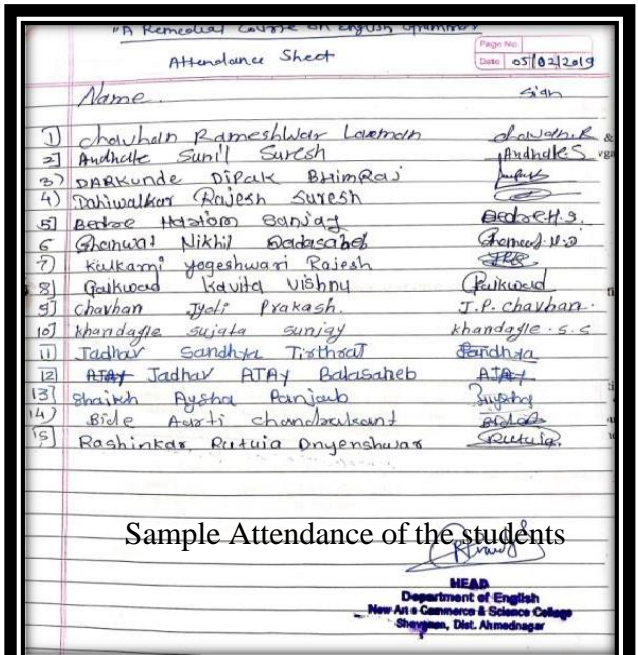 "A Remedial Course on English Grammar
Attendance Sheet
Page No.
Date 05/02/2019
Name. Sign
1) Chavhan Rameshwar Laxman chavan.R
2] Andhale Sunil Suresh Andhale S
3) DARKunde DiPak BHimRaj
4) Dahiwalkar Rajesh Suresh
5] Bedre Sanjay Bedre H.S.
6 Ghanwat Nikhil Dadasaheb
7) Kulkarni yogeshwari Rajesh
8] Gaikwad Kavita Vishnu Gaikwad
9] chavhan Jyoti Prakash. J.P. chavhan.
10] khandagle sujata sunjay khandagle.s.s
11] Jadhav Sandhya Tirthrat Sandhya
12] AJAY Jadhav AJAY Balasaheb AJAY
13] Shaikh Aysha Panjab
14) Bide Aarti chandrakant
15] Rashinkar Rutuja Dnyenshwar Rutuja
Sample Attendance of the students
HEAD
Department of English
New Arts Commerce & Science College
Shevgaon, Dist. Ahmednagar